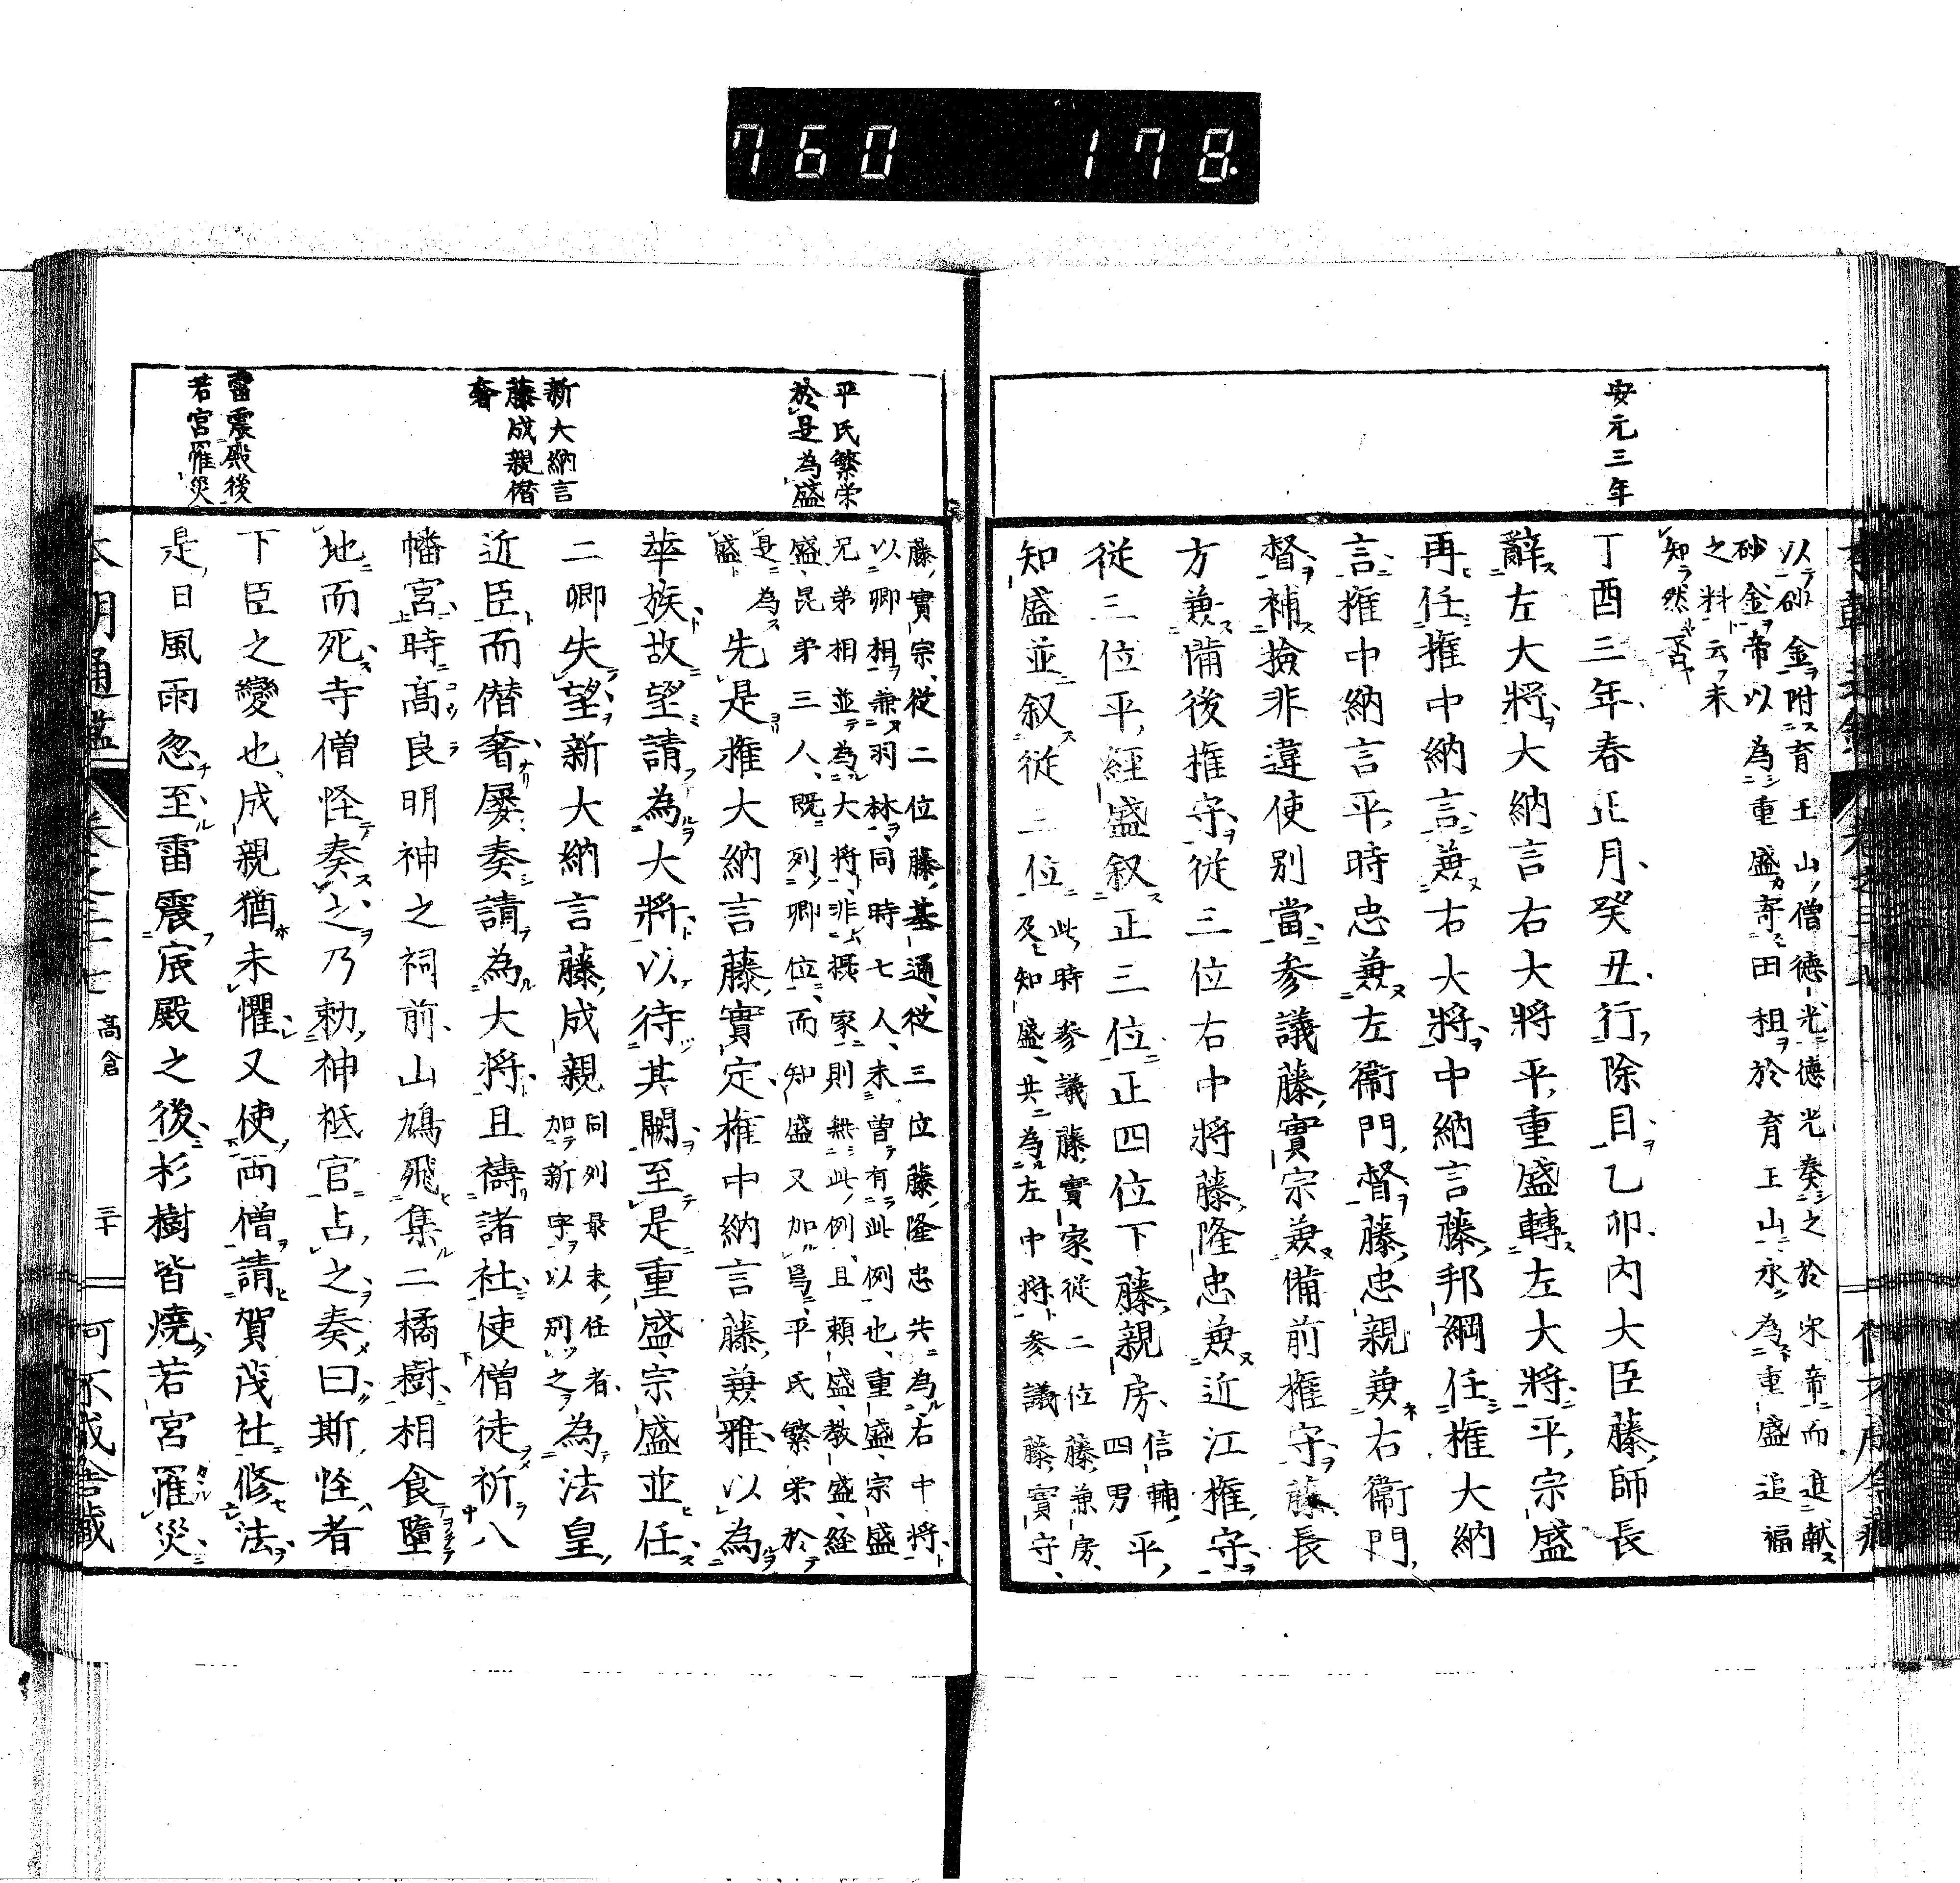 760 178
安元三年
以砂金附育王山僧德光德光奏之於宋帝而進献
砂金帝以為重盛寄田租於育王山永為重盛追福
之料云未
知然否
丁酉三年春正月癸丑行除目乙卯內大臣藤師長
辭左大將大納言右大將平重盛轉左大將平宗盛
再任權中納言兼右大將中納言藤邦綱任權大納
言權中納言平時忠兼左衞門督藤忠親兼右衞門
督補撿非違使別當參議藤實宗兼備前權守藤長
方兼備後權守從三位右中將藤隆忠兼近江權守
從三位平經盛叙正三位正四位下藤親房信輔四男平
知盛並叙從三位此時參議藤實家從二位藤兼房
及知盛共為左中將參議藤實守
平氏繁栄
於是為盛
新大納言
藤成親僭
奢
雷震殿後
若宮罹災
藤實宗從二位藤基通從三位藤隆忠共為右中將
以卿相兼羽林同時七人未曾有此例也重盛宗盛
兄弟相並為大將非摂家則無此例且頼盛教盛經
盛昆弟三人既列卿位而知盛又加焉平氏繁栄於
是為
盛
先是權大納言藤實定權中納言藤兼雅以為
華族故望請為大將以待其闕至是重盛宗盛並任
二卿失望新大納言藤成親同列最末任者
加新字以別之為法皇
近臣而僭奢屡奏請為大將且禱諸社使僧徒祈八
幡宮時髙良明神之祠前山鳩飛集二橘樹相食墮
地而死寺僧怪奏之乃勅神祗官占之奏曰斯怪者
下臣之變也成親猶未懼又使兩僧請賀茂社修法
是日風雨忽至雷震宸殿之後杉樹皆燒若宮罹災
本朝通鑑 卷之三十七 高倉 三十